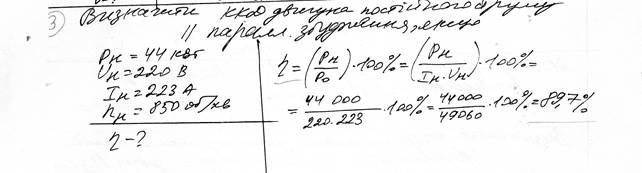 ③ Визначити ККД двигуна постійного струму
// паралл. збудження, якщо
Pн = 44 кВт
Uн = 220 В
Iн = 223 А
nн = 850 об/хв
η - ?
η = (Pн/P0) · 100% = (Pн/(Iн · Uн)) · 100% =
= 44 000/(220 · 223) · 100% = 44000/49060 · 100% = 89,7%